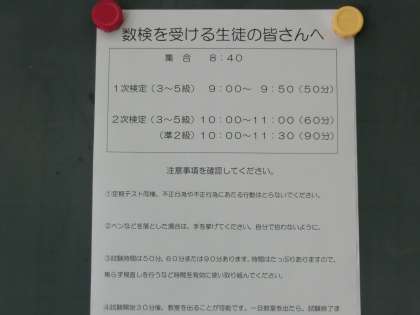 数検を受ける生徒の皆さんへ
集　合　８：４０
１次検定（３～５級）　９：００～　９：５０（５０分）
２次検定（３～５級）１０：００～１１：００（６０分）
（準２級）１０：００～１１：３０（９０分）
注意事項を確認してください。
①定期テスト同様、不正行為や不正行為にあたる行動はとらないでください。
②ペンなどを落とした場合は、手を挙げてください。自分で拾わないように。
③試験時間は５０分、６０分または９０分あります。時間はたっぷりありますので、
焦らず見直しを行うなど時間を有効に使い取り組んでください。
④試験開始３０分後、教室を出ることが可能です。一旦教室を出たら、試験終了ま